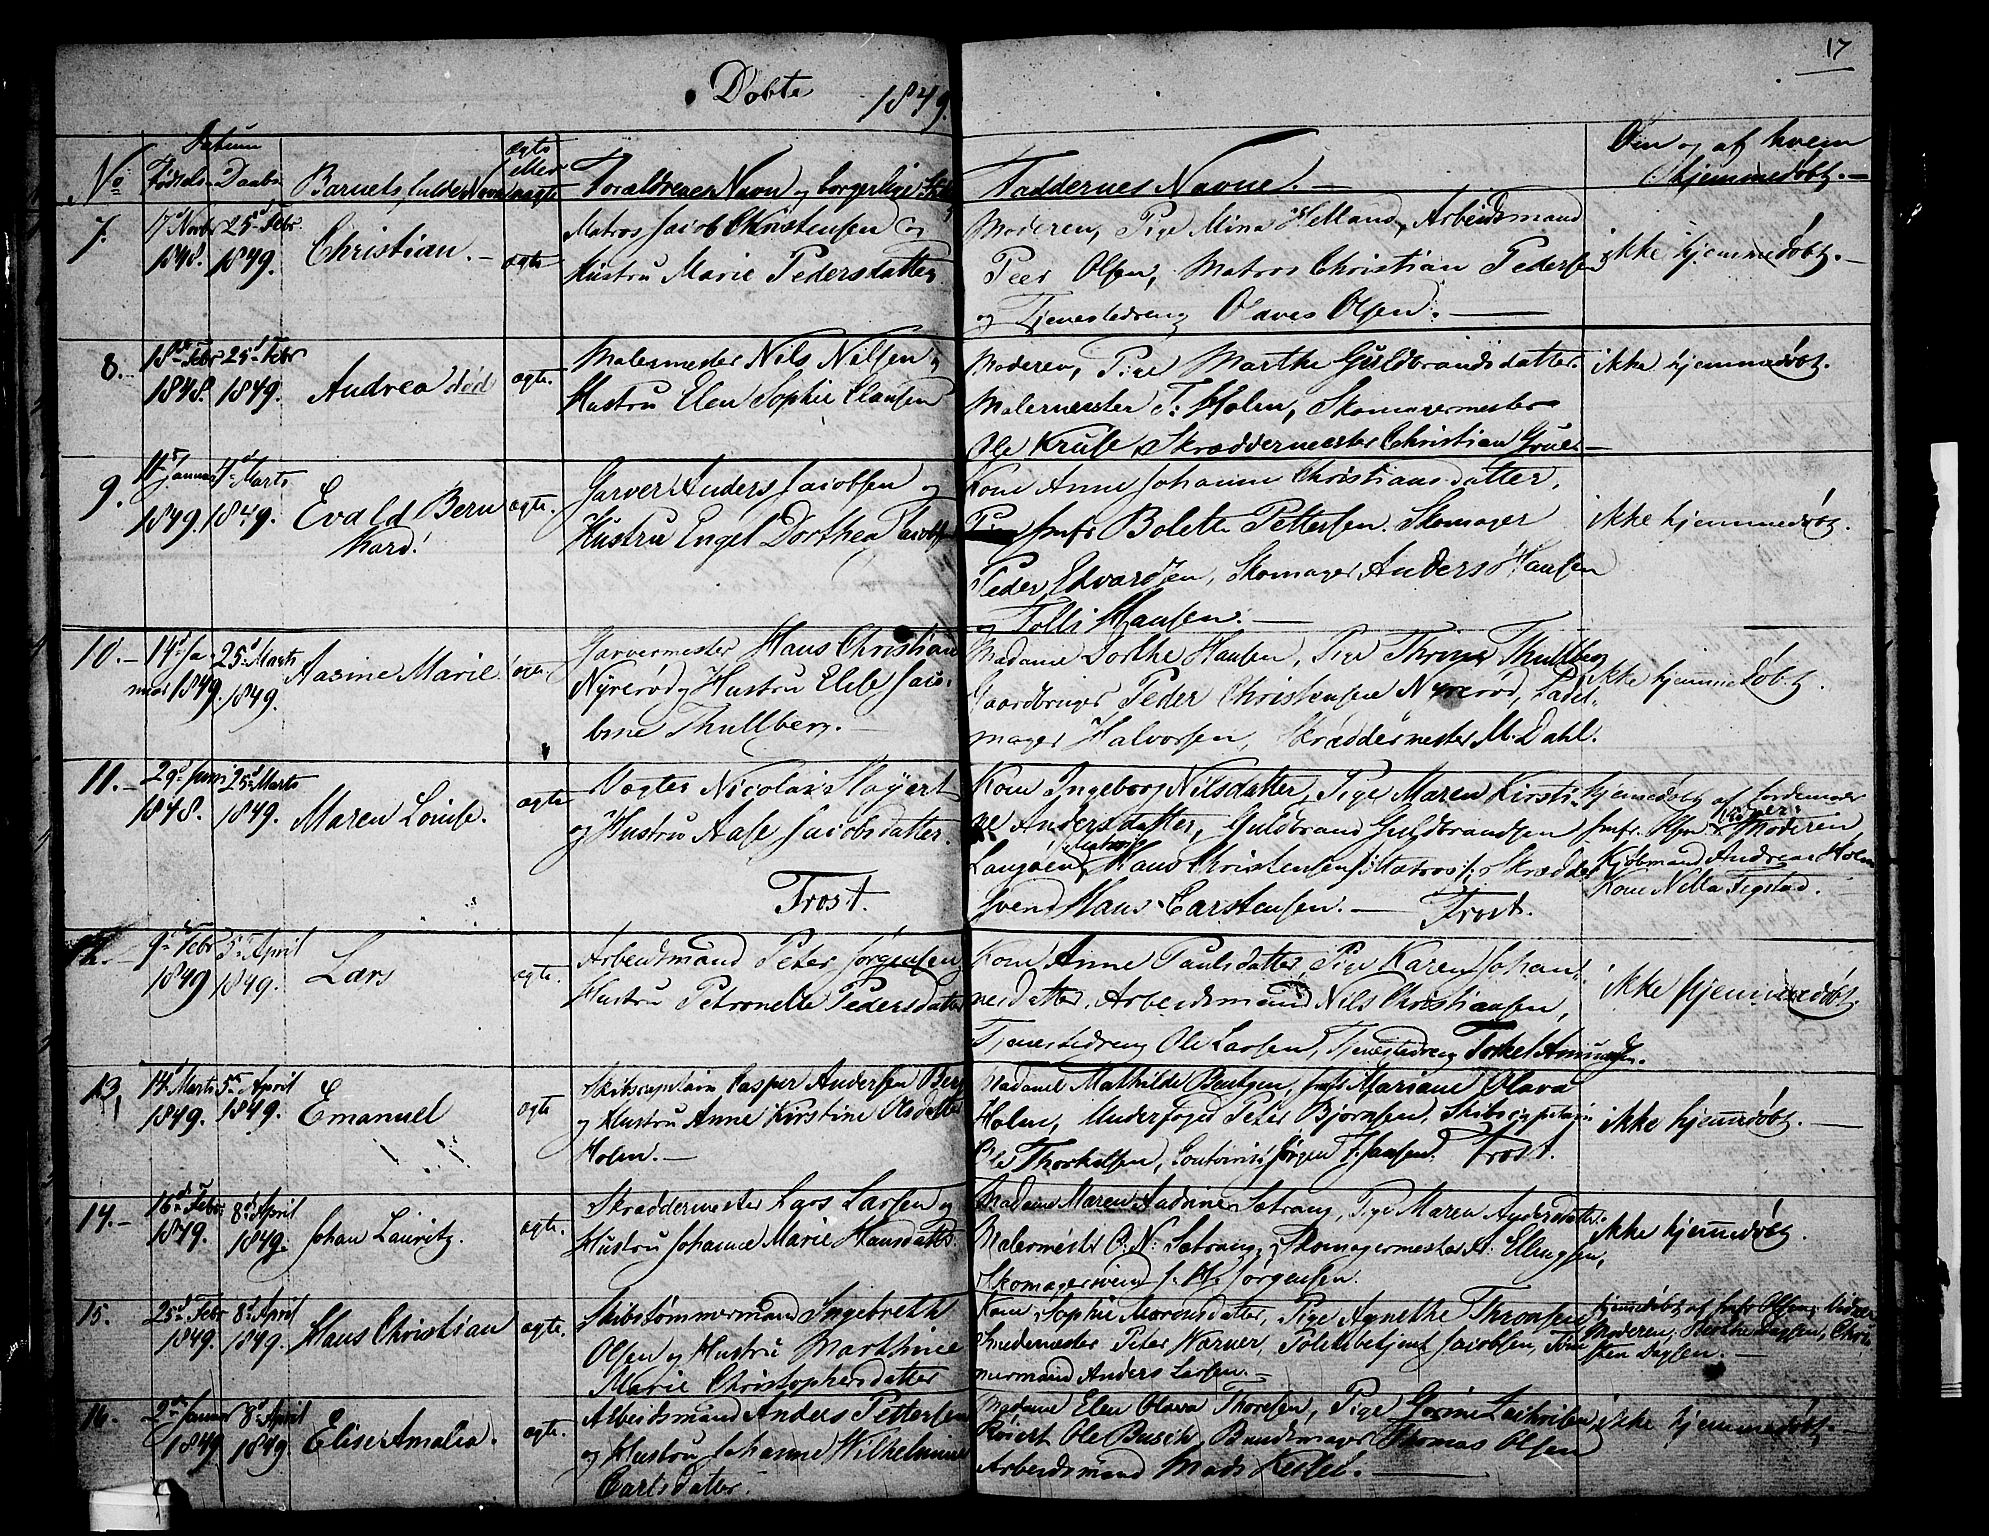 17
Døbte 1849.
No
Datum
Fødsels Daabs
Barnets fulde Navn
ægte eller uægte
Forældrenes Navn og borgerlige
Faddernes Navne.
Om og af hvem hjemmedøbt.
7.
17d Novbr 1848.
25d Febr 1849.
Christian.
ægte
Matros Jacob Christensen og
Hustru Marie Pedersdatter
Moderen, Pige Mina Helland, Arbeidsmand
Peer Olsen, Matros Christian Pedersen
og Tjenestedreng Olaves Olsen.
ikke hjemmedøbt.
8.
18de Febr 1848.
25d Febr 1849.
Andrea død
ægte.
Malermester Nils Nilsen og
Hustru Elen Sophie Clausen
Moderen, Pige Marthe Guldbrandsdatter
Malermester T. Holen, Skomagermester
Ole Kruse, Skræddermester Christian Gruer
ikke hjemmedøbt.
9.
Januar 1849.
Marts 1849.
Evald Bern
hard.
ægte.
Garver Anders Jacobsen og
Hustru Engel Dorthea
Kone Anne Johanne Christiansdatter,
Jmfr Bolette Pettersen. Skomager
Peder Edvardsen, Skomager Anders Hansen
og Hansen.
ikke hjemmedøbt.
10.
14d Januar 1849.
25d Marts 1849.
Aasine Marie
ægte
Garvermester Hans Christian
Nyrerød og Hustru Else Jaco-
bine Thullberg.
Madame Dorthe Hansen, Pige Thrine Thullberg
Gaardbruger Peder Christensen Nyrerød, Sadel-
mager Halvorsen, Skræddermester M. Dahl.
ikke hjemmedøbt.
11.
29d Juni 1848.
25d Marts 1849.
Maren Louise.
ægte
Vægter Nicolai Høyert
og Hustru Aase Jacobsdatter.
Frost.
Kone Ingeborg Nilsdatter, Pige Maren Kirsti-
ne Andersdatter, Guldbrand Guldbrandsen
Langøen, Hans Christensen Matros, Skrædder
svend Hans Carstensen. Frost.
hjemmedøbt af Jordemoder
Jmfr. Olsen Moderen,
Kjøbmand Andreas Holm
Kone Nilla Tigstad.
12.
9d Febr 1849
5d April 1849.
Lars
ægte.
Arbeidsmand Peter Jørgensen
Hustru Petronelle Pedersdatter
Kone Anne Paulsdatter, Pige Karen Johan-
nesdatter, Arbeidsmand Nils Christiansen,
Tjenestedreng Ole Larsen, Tjenestedreng Torkel Amundsen.
ikke hjemmedøbt.
13.
14d Marts 1849.
5te April 1849.
Emanuel
ægte
Skibscaptain Casper Andersen Berg
og Hustru Anne Kirstine Olsdatter
Holm.
Madame Mathilde Bentzen, Jmfr Mariane Olava
Holm, Underfoged Peter Bjørnsen, Skibscaptain
Ole Thorkelsen, Jørgen T. Jansen. Frost.
ikke hjemmedøbt.
14.
16d Febr 1849.
8d April 1849.
Johan Lauritz.
ægte.
Skræddermester Lars Larsen og
Hustru Johanne Marie Hansdatter
Madame Maren Andrine Sætrang, Pige Maren Andersdatter
Malermester O. N. Sætrang, Skomagermester A. Ellingsen,
Skomagersvend J. H. Jørgensen.
ikke hjemmedøbt.
15.
25d Febr 1849.
8d April 1849.
Hans Christian
ægte.
Skibstømmermand Ingebreth
Olsen og Hustru Marthine
Marie Christophersdatter
Kone Sophie Morensdatter, Pige Agnethe Thronsen
Smedermester Peter Warner, Politibetjent Jacobsen, Tøm
mermand Anders Larsen.
hjemmedøbt af Jmfr Olsen,
Moderen, Berthe Dagsen, Chri-
sten Dagsen.
16.
2d Januar 1849
8d April 1849.
Elise Amalia.
ægte.
Arbeidsmand Anders Pettersen
og Hustru Johanne Wilhelmine
Carlsdatter.
Madame Elen Olava Thoresen, Pige Gorine Zachrisen
Ole Busch, Bundtmager Thomas Olsen
Arbeidsmand Mads Kessel.
ikke hjemmedøbt.